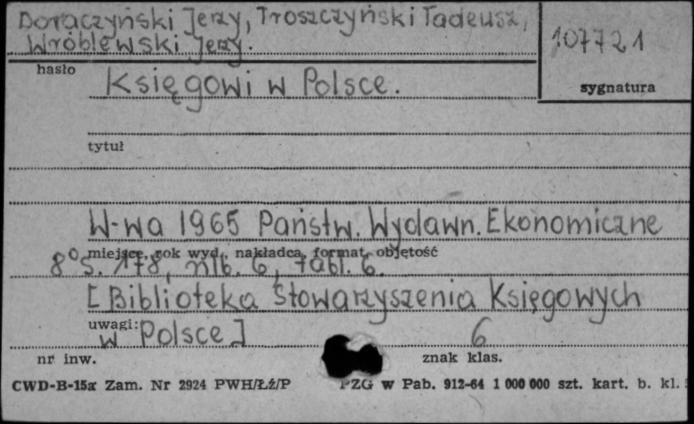 Doraczyński Jerzy, Troszczyński Tadeusz,
Wróblewski Jerzy.
107721
hasło
Księgowi w Polsce.
sygnatura
tytuł
W-wa 1965 Państw. Wydawn. Ekonomiczne
miejsce, rok wyd., nakładca, format, objętość
8° s. 178, nlb. 6, tabl. 6.
[Biblioteka Stowarzyszenia Księgowych
uwagi:
w Polsce]
6
nr inw.
znak klas.
CWD-B-15a Zam. Nr 2924 PWH/Łź/P
PZG w Pab. 912-64 1 000 000 szt. kart. b. kl.